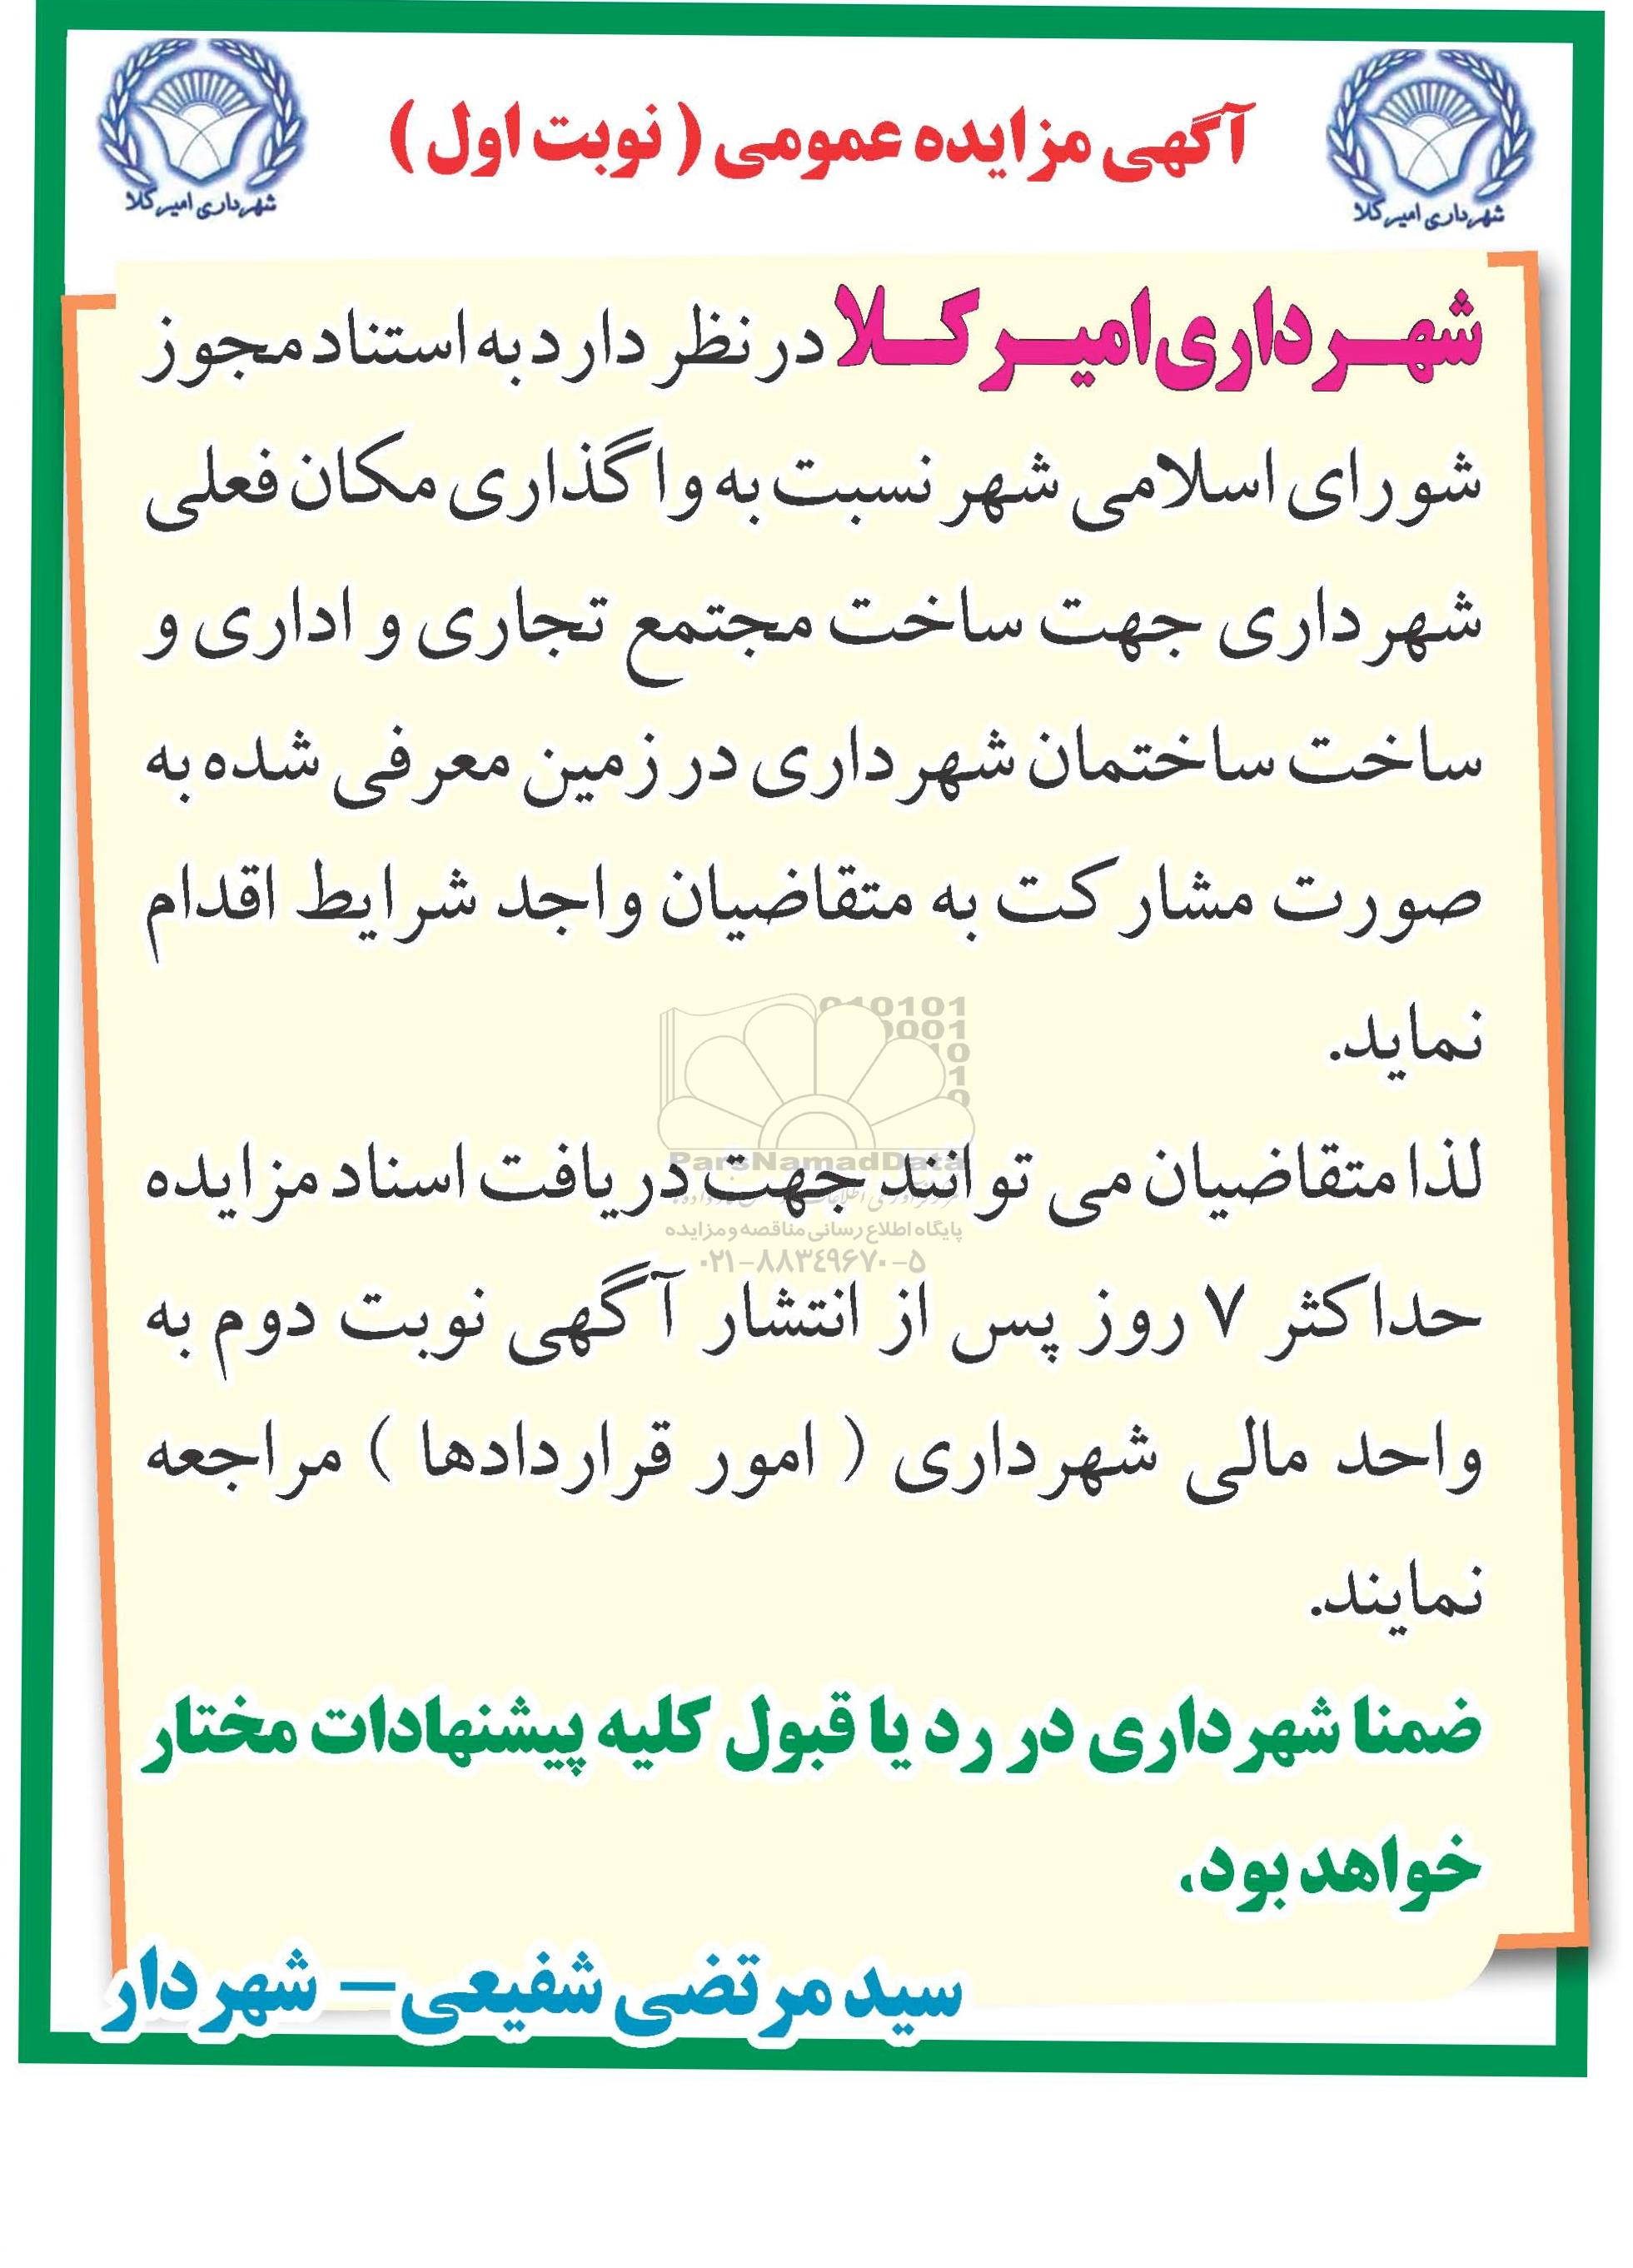 آگهی مزایده عمومی ( نوبت اول )
شهرداری امیرکلا
شهرداری امیرکلا
شهرداری امیرکلا در نظر دارد به استناد مجوز
شورای اسلامی شهر نسبت به واگذاری مکان فعلی
شهرداری جهت ساخت مجتمع تجاری و اداری و
ساخت ساختمان شهرداری در زمین معرفی شده به
صورت مشارکت به متقاضیان واجد شرایط اقدام
نماید.
لذا متقاضیان می توانند جهت دریافت اسناد مزایده
حداکثر ۷ روز پس از انتشار آگهی نوبت دوم به
واحد مالی شهرداری ( امور قراردادها ) مراجعه
نمایند.
ضمنا شهرداری در رد یا قبول کلیه پیشنهادات مختار
خواهد بود.
سید مرتضی شفیعی – شهردار
ParsNamadData
پایگاه اطلاع رسانی مناقصه و مزایده
۰۲۱-۸۸۳۴۹۶۷۰-۵